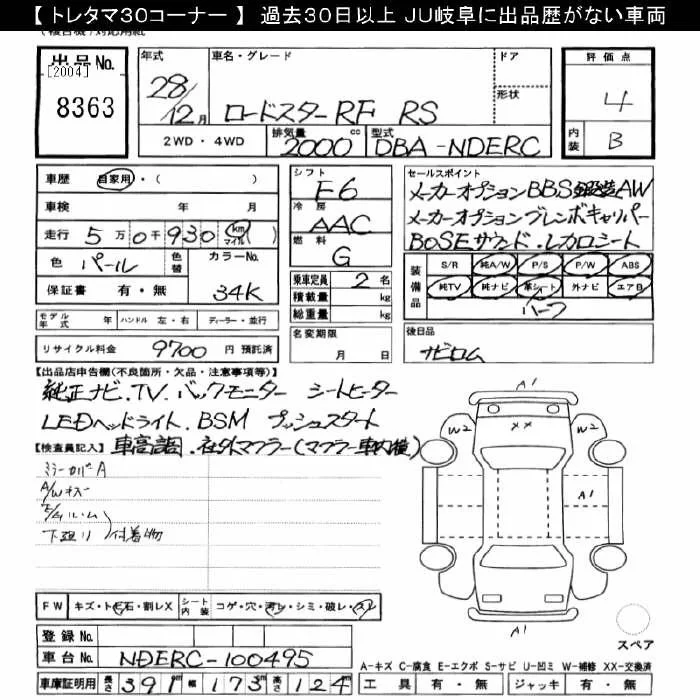 【トレタマ30コーナー】 過去30日以上 JU岐阜に出品歴がない車両
出品No. [2004] 8363
年式 28/12月
車名・グレード ロードスターRF RS
ドア 形状
評価点 4
内装 B
2WD・4WD 排気量 2000 cc 型式 DBA-NDERC
車歴 自家用・( )
車検 年 月
走行 5万0千930 km マイル( )
色 パール 色替 カラーNo. 34K
保証書 有・無
シフト F6
冷房 AAC
燃料 G
乗車定員 2名
積載量 kg
総重量 kg
セールスポイント
メーカーオプションBBS鍛造AW
メーカーオプションブレンボキャリパー
BOSEサウンド.レカロシート
装備品 S/R 純A/W P/S P/W ABS
純TV 純ナビ 革シート 外ナビ エアB
ハーフ
モデル年式 年 ハンドル 左・右 ディーラー・並行
名変期限 月 日
後日品 ナビロム
リサイクル料金 9700円 預託済
【出品店申告欄(不良箇所・欠品・注意事項等)】
純正ナビ.TV.バックモニター シートヒーター
LEDヘッドライト.BSM プッシュスタート
【検査員記入】 車高調.社外マフラー(マフラー車内積)
ミラーカバーA
A/Wキズ
下廻り 付着物
A1
W2 ×× W2
A1
A1
スペア
FW キズ・トビ石・割レX シート内装 コゲ・穴・汚レ・シミ・破レ・スレ
登録No.
車台No. NDERC-100495
車庫証明用 長さ 391 幅 173 高さ 124
A-キズ C-腐食 E-エクボ S-サビ U-凹ミ W-補修 XX-交換済
工具 有・無 ジャッキ 有・無